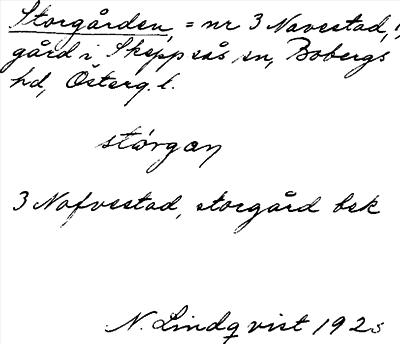 Storgården, = nr 3 Navestad,
gård i Skeppsås sn, Bobergs
hd, Österg. l.
stórgan
3 Nafvestad, storgård bek
N. Lindqvist 1925